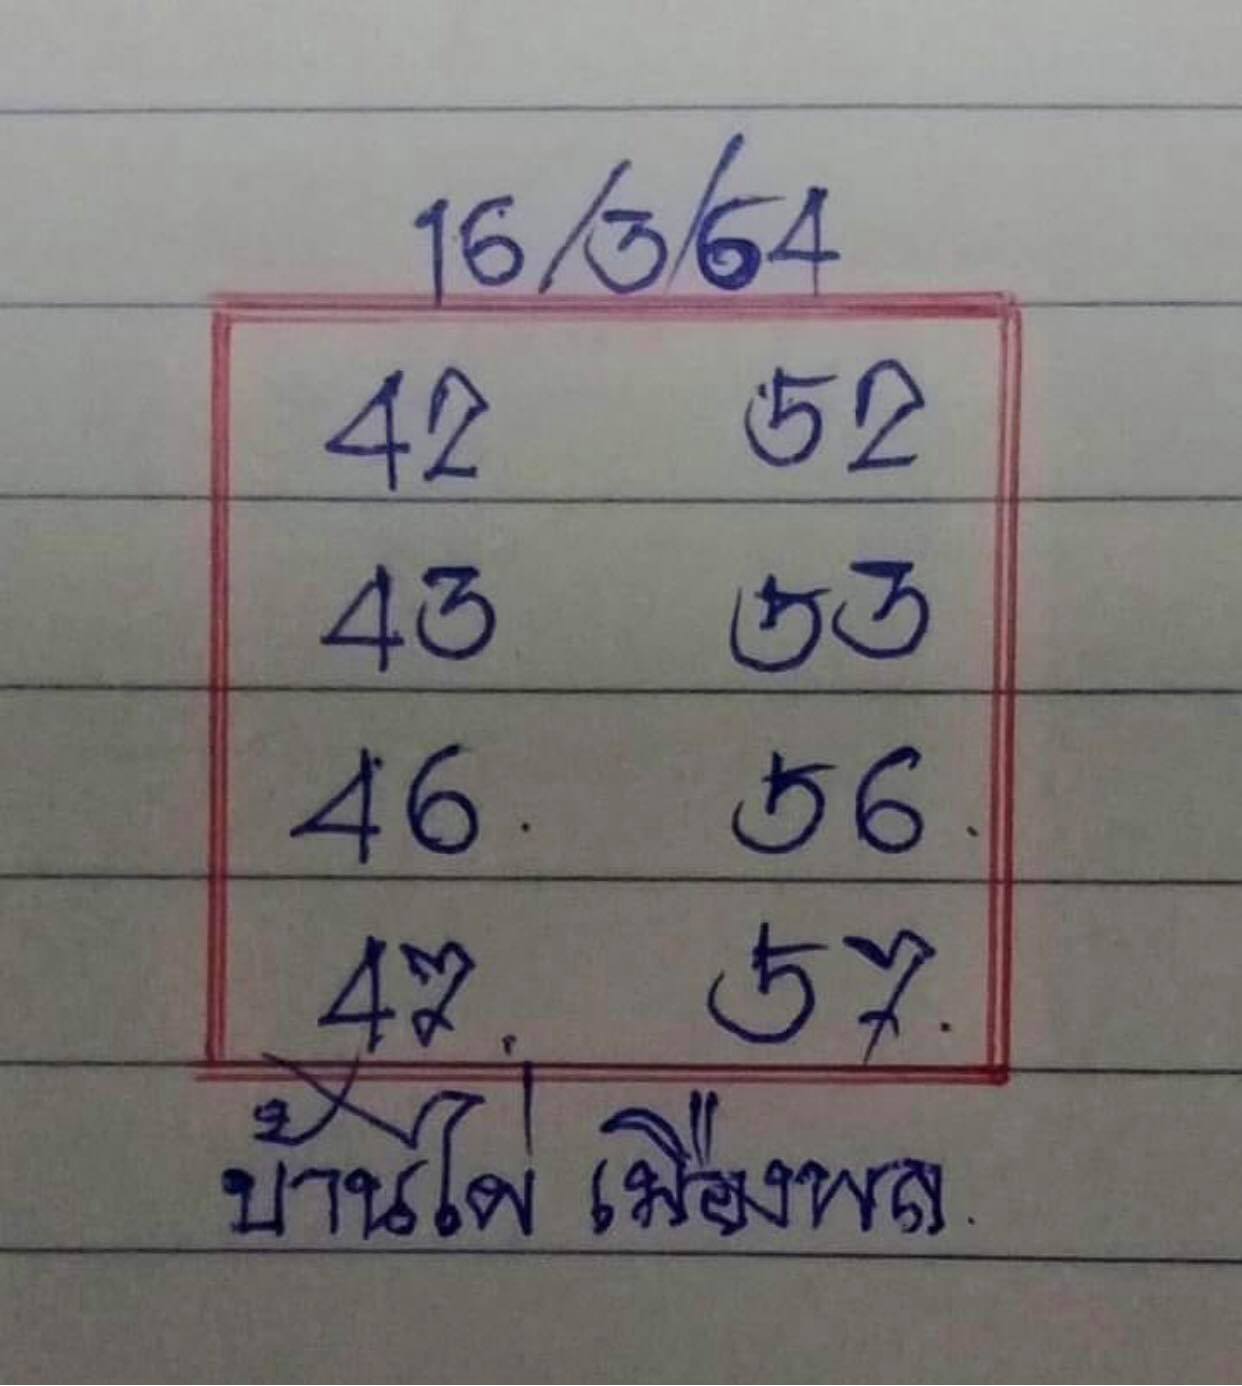 16/3/64
42 52
43 53
46. 56.
47. 57.
บ้านไผ่ เมืองพล.